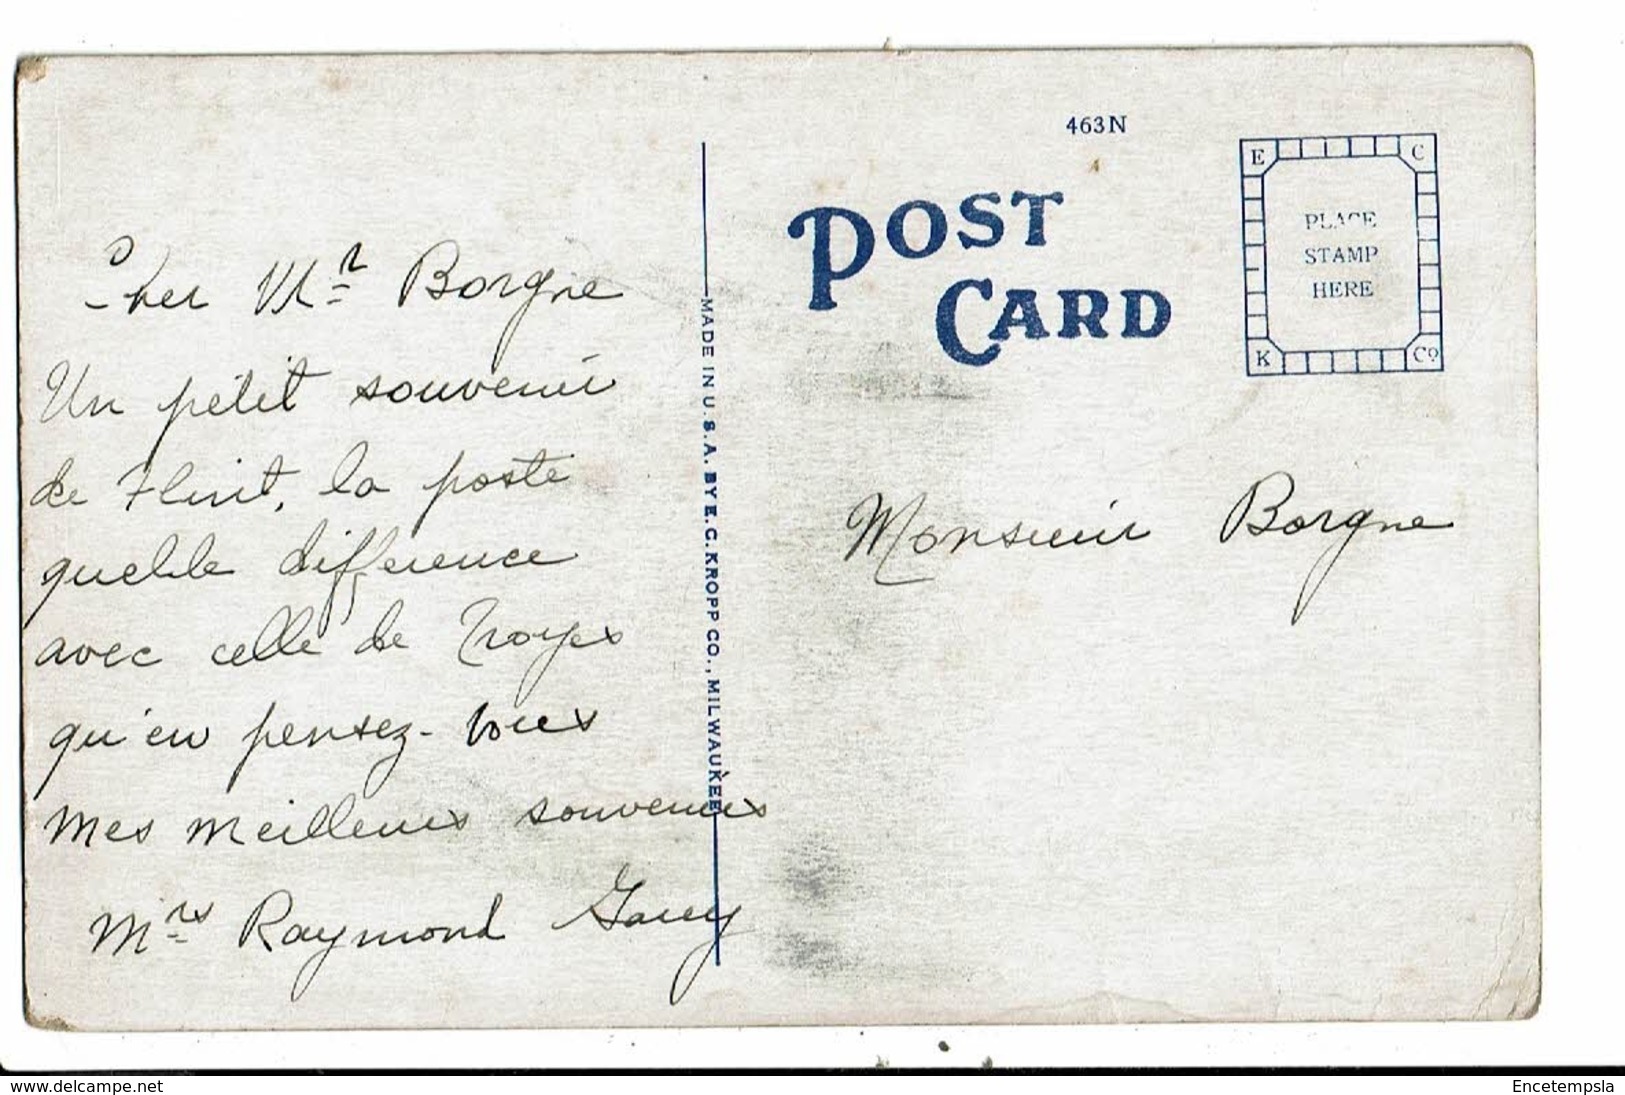 Cher Mr Borgne
Un petit souvenir
de Flint, la poste
quelle différence
avec celle de Troyes
qu'en pensez-vous
mes meilleurs souvenirs
Mrs Raymond
463N
POST
CARD
E C
PLACE
STAMP
HERE
K Co
MADE IN U.S.A. BY E.C. KROPP CO., MILWAUKEE
Monsieur Borgne
www.delcampe.net
Encetempsla